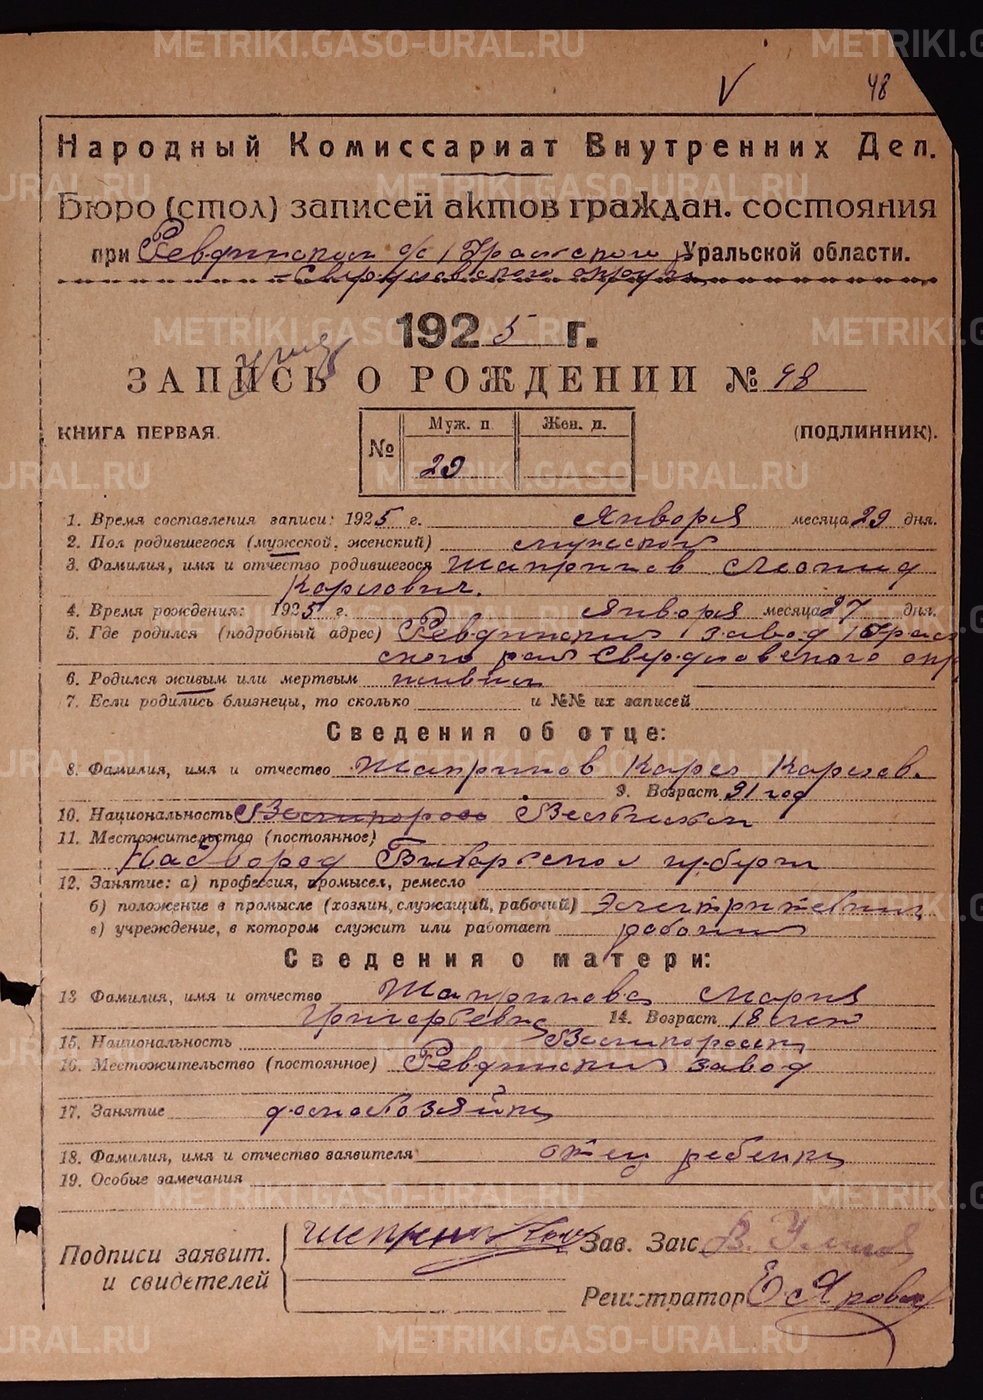 METRIKI.GASO-URAL.RU
V 48
Народный Комиссариат Внутренних Дел.
Бюро (стол) записей актов граждан. состояния
при Ревдинском с/с Уральской области.
Свердловского округа
1925 г.
ЗАПИСЬ О РОЖДЕНИИ № 48
КНИГА ПЕРВАЯ. (ПОДЛИННИК).
№ Муж. п. Жен. п.
29
1. Время составления записи: 1925 г. Января месяца 29 дня.
2. Пол родившегося (мужской, женский) мужской
3. Фамилия, имя и отчество родившегося Леонид
Карлович.
4. Время рождения: 1925 г. января месяца 27 дня.
5. Где родился (подробный адрес) Ревдинский завод
ского рай Свердловского окр
6. Родился живым или мертвым живым
7. Если родились близнецы, то сколько и №№ их записей
Сведения об отце:
8. Фамилия, имя и отчество Карл Карлов.
9. Возраст 31 год
10. Национальность
11. Местожительство (постоянное)
губерни
12. Занятие: а) профессия, промысел, ремесло
б) положение в промысле (хозяин, служащий, рабочий)
в) учреждение, в котором служит или работает рабочий
Сведения о матери:
13 Фамилия, имя и отчество Мария
Григорьевна 14. Возраст 18 лет
15. Национальность
16. Местожительство (постоянное) Ревдинский завод
17. Занятие домохозяйка
18. Фамилия, имя и отчество заявителя отец ребенка
19. Особые замечания
Подписи заявит.
и свидетелей
Зав. Загс В.
Регистратор Е.